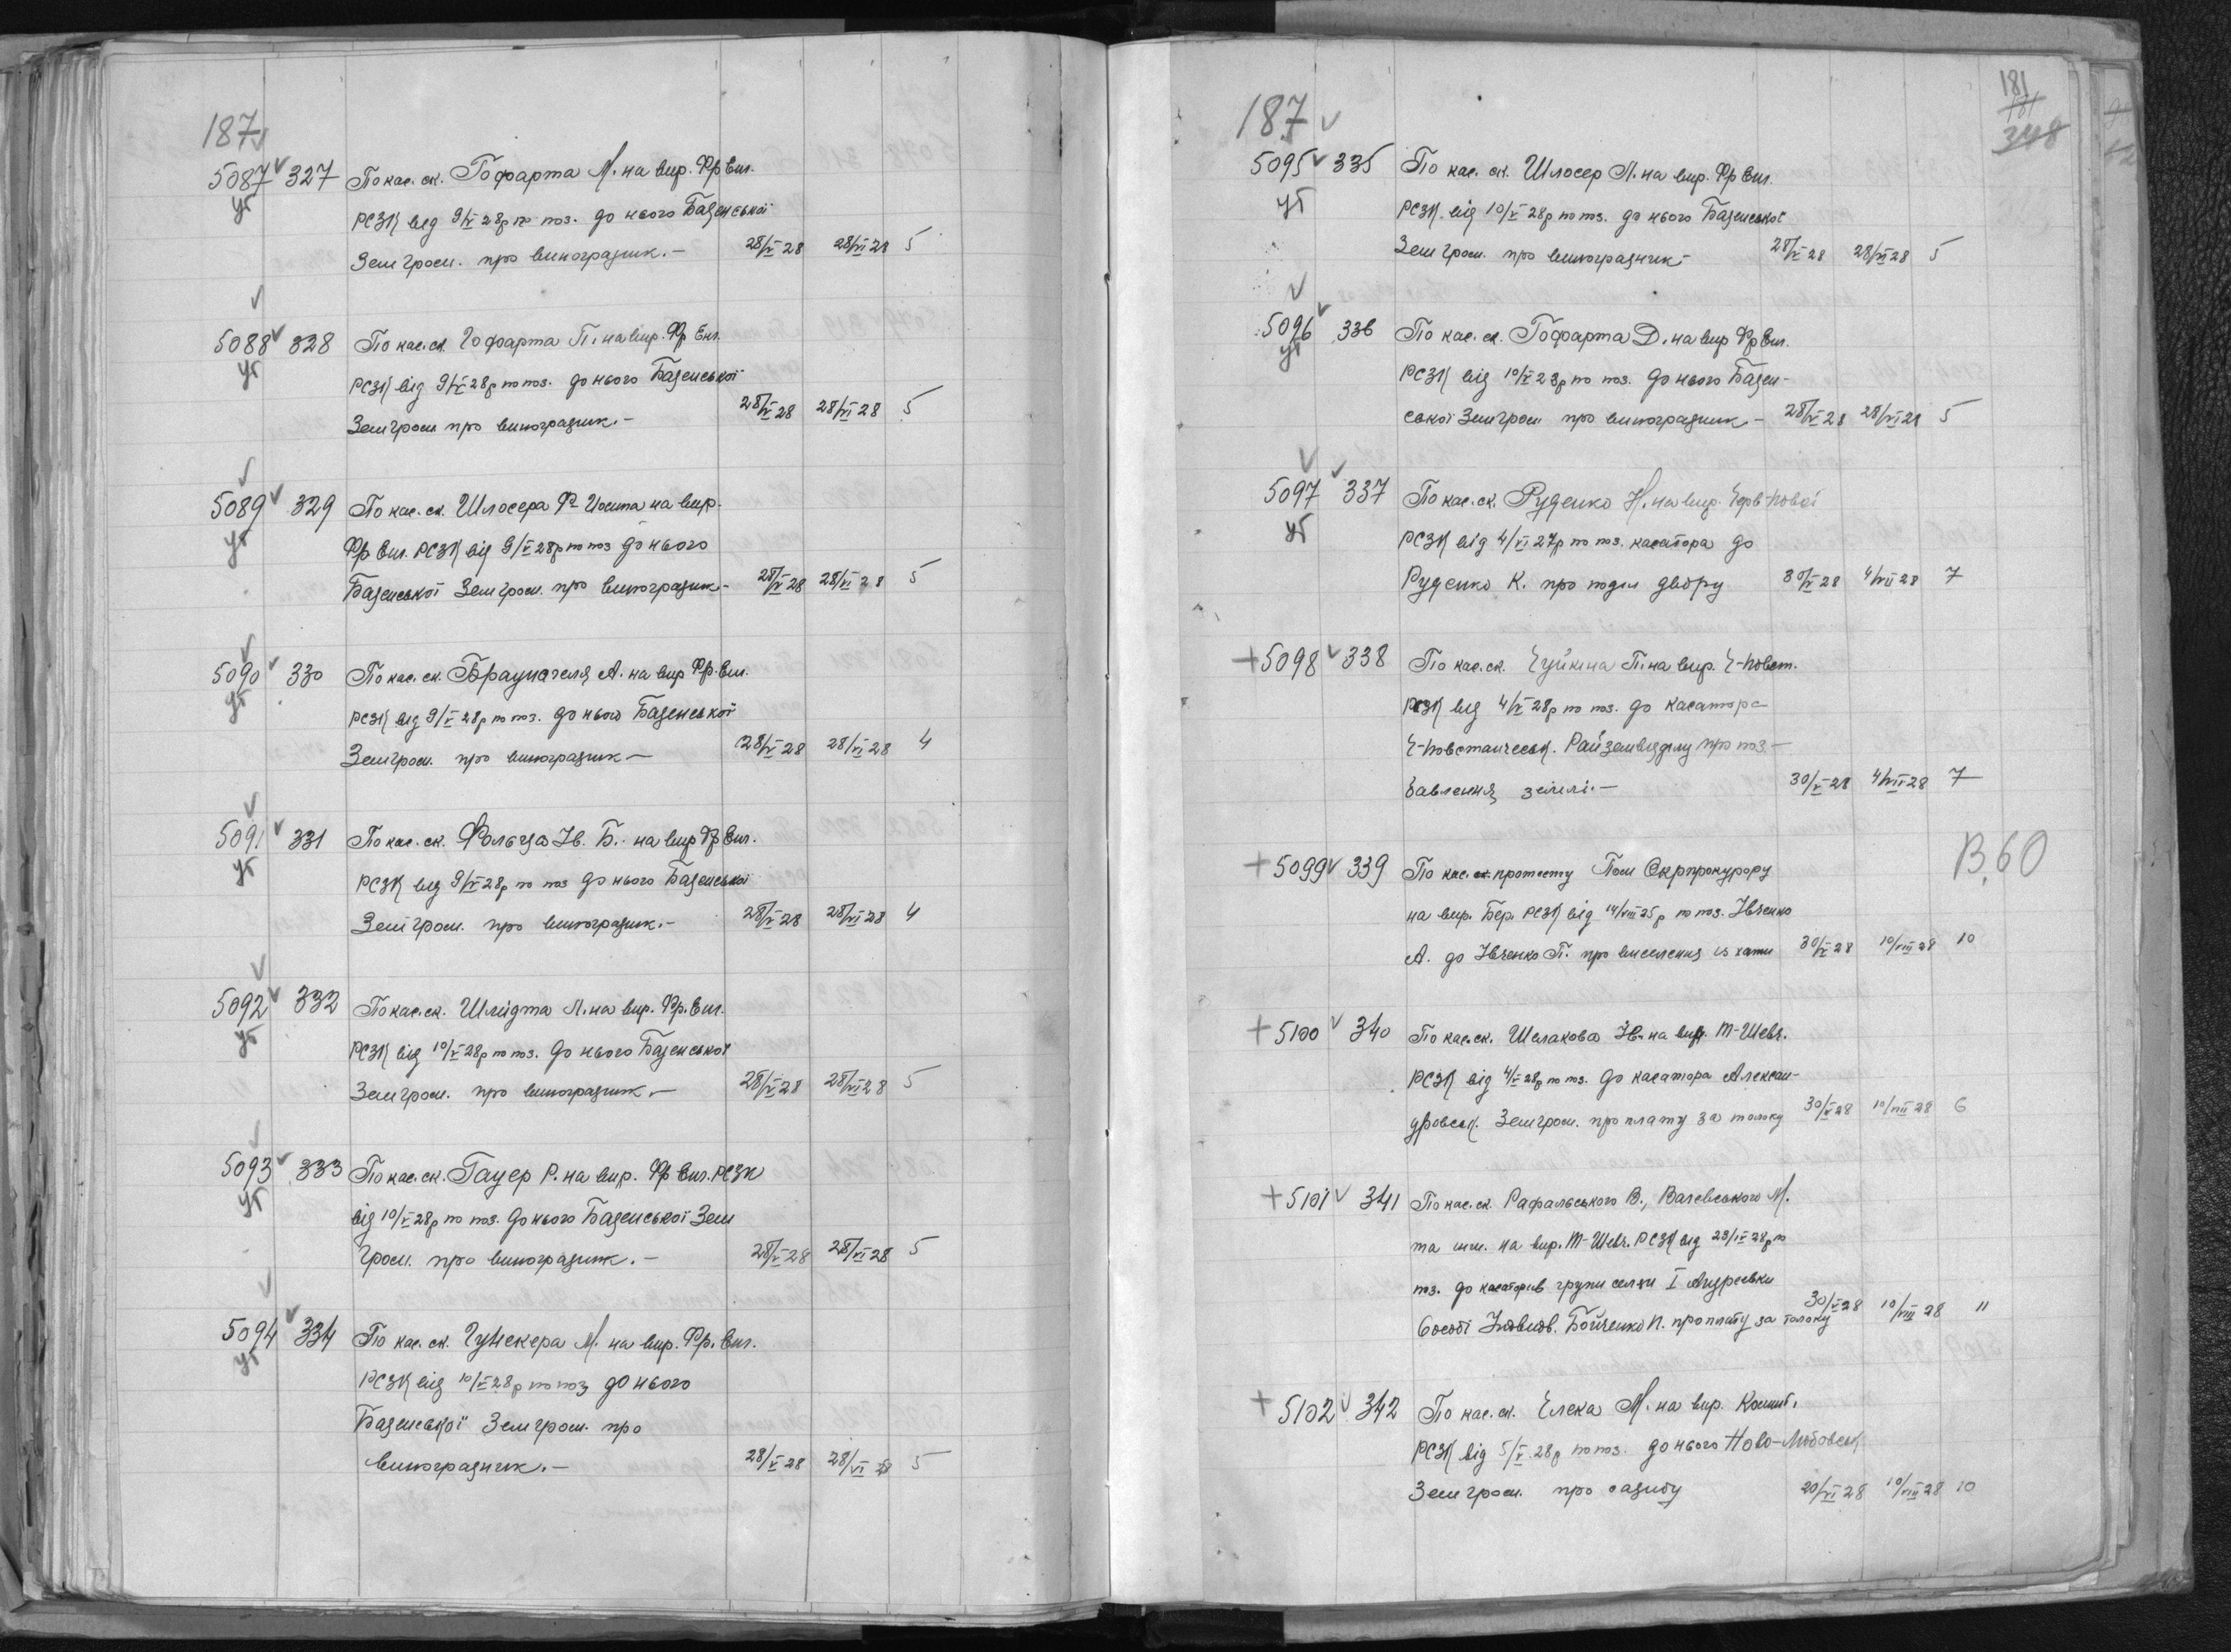 187
5087 327 По кас. ск. Гофарта М. на вир. Фр Енг.
уг РСЗК від 9/V 28р по поз. до нього Баденської
Земгром. про виноградник.- 28/V 28 28/VI 28 5
5088 328 По кас. ск. Гофарта П. на вир. Фр Енг.
уг РСЗК від 9/V 28р по поз. до нього Баденської
Земгром про виноградник.- 28/V 28 28/VI 28 5
5089 329 По кас. ск. Шлосера Ф- Иосипа на вир.
уг Фр Енг. РСЗК від 9/V 28р по поз до нього
Баденської Земгром. про виноградник- 28/V 28 28/VI 28 5
5090 330 По кас. ск. Браунагеля А. на вир Фр. Енг.
уг РСЗК від 9/V 28р по поз. до нього Баденської
Земгром. про виноградник- 28/V 28 28/VI 28 4
5091 331 По кас. ск. Фольца Ів. Б. на вир Фр Енг.
уг РСЗК від 9/V 28р по поз до нього Баденської
Земгром. про виноградник.- 28/V 28 28/VI 28 4
5092 332 По кас. ск. Шмідта Л. на вир. Фр. Енг.
уг РСЗК від 10/V 28р по поз. до нього Баденської
Земгром. про виноградник.- 28/V 28 28/VI 28 5
5093 333 По кас. ск. Гауер Р. на вир. Фр Енг. РСЗК
уг від 10/V 28р по поз. до нього Баденської Зем
гром. про виноградник.- 28/V 28 28/VI 28 5
5094 334 По кас. ск. Гунекера М. на вир. Фр. Енг.
уг РСЗК від 10/V 28р по поз до нього
Баденської Земгром. про
виноградник.- 28/V 28 28/VI 28 5
181
181
348
187
5095 335 По кас. ск. Шлосер Л. на вир. Фр Енг.
уг РСЗК від 10/V 28р по поз. до нього Баденської
Земгром. про виноградник- 28/V 28 28/VI 28 5
5096 336 По кас. ск. Гофарта Д. на вир Фр Енг.
уг РСЗК від 10/V 28р по поз. до нього Баден-
ської Земгром про виноградник- 28/V 28 28/VI 28 5
5097 337 По кас. ск. Руденко Н. на вир. Черв-Пової
уг РСЗК від 4/VI 27р по поз. касатора до
Руденко К. про поділ двору 30/V 28 4/VII 28 7
+5098 338 По кас. ск. Чуйкина П. на вир. Ч-Повст.
РСЗК від 4/V 28р по поз. до касатора
Ч-Повстанческ. Райземвідділу про поз-
бавлення землі.- 30/V 28 4/VII 28 7
В.60
+5099 339 По кас. ск. протесту Пом Окрпрокурору
на вир. Бер. РСЗК від 14/VIII 25р по поз. Івченко
А. до Івченко П. про виселення із хати 30/V 28 10/VIII 28 10
+5100 340 По кас. ск. Шелакова Ів. на вир. Т-Шевч.
РСЗК від 4/V 28р по поз. до касатора Алексан-
дровськ. Земгром. про плату за толоку 30/V 28 10/VIII 28 6
+5101 341 По кас. ск. Рафальського В., Валевського М.
та инш. на вир. Т-Шевч. РСЗК від 29/IV 28р по
поз. до касаторів групи селян I Андреевки
в особі Бойченко П. про плату за толоку 30/V 28 10/VIII 28 11
+5102 342 По кас. ск. Елека М. на вир. Комінт.
РСЗК від 5/V 28р по поз. до нього Ново-Любовськ
Земгром. про садибу 20/VI 28 10/VIII 28 10